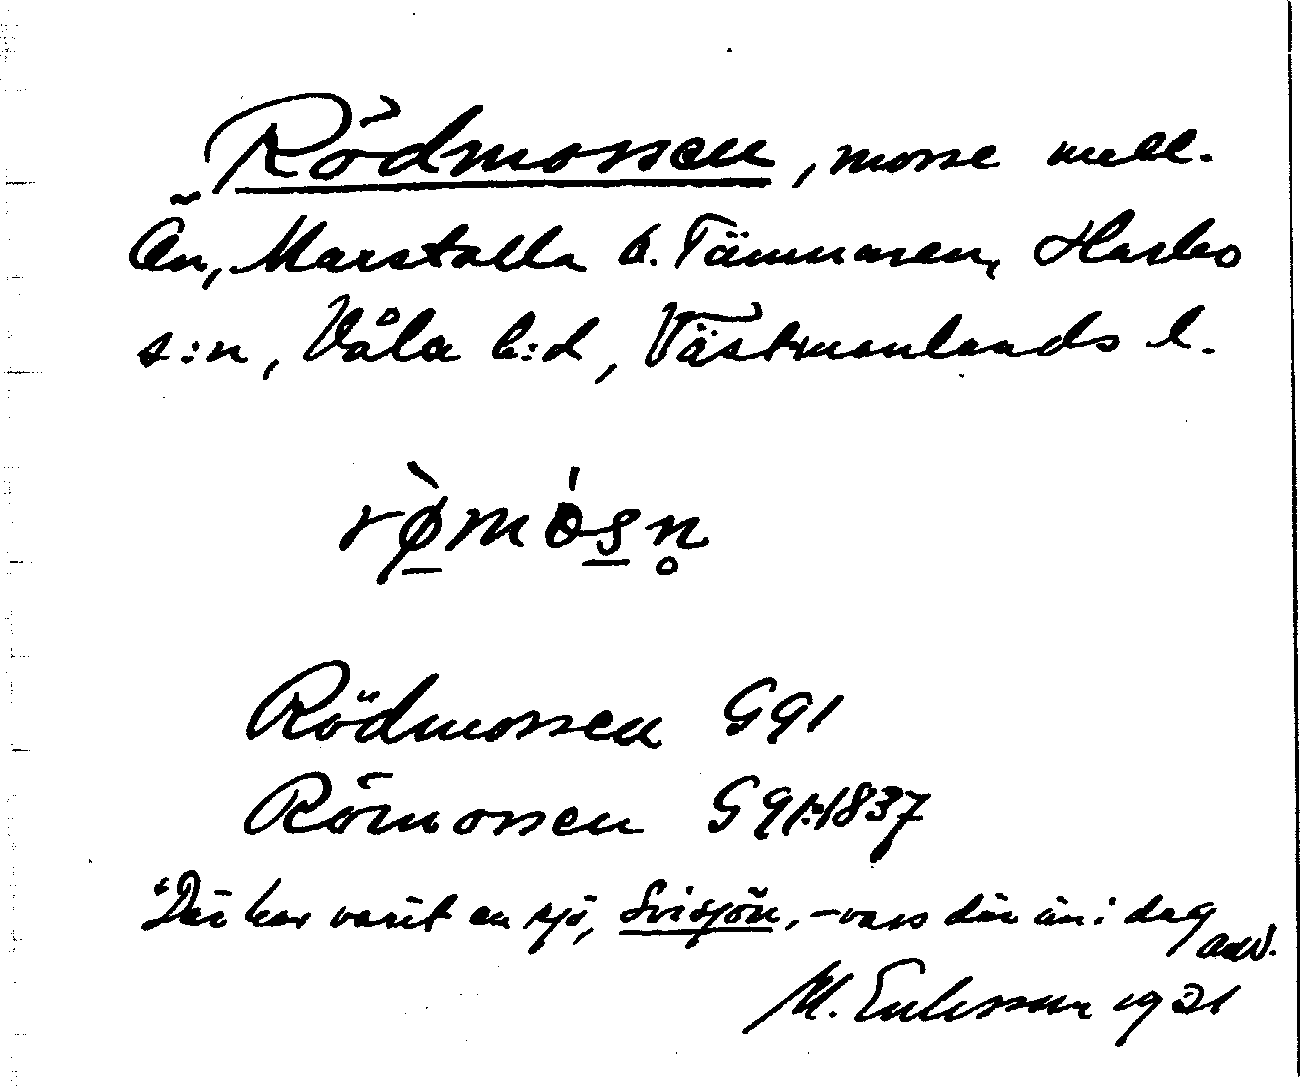 Rödmossen, mosse mell.
Ån, Marstalla o. Tämnaren, Harbo
s:n, Våla h:d, Västmanlands l.
rø̀mósn̥
Rödmossen G91
Römossen G91:1837
"Där har varit en sjö, Svisjön, – vass där än i dag
M. Eriksson 1931